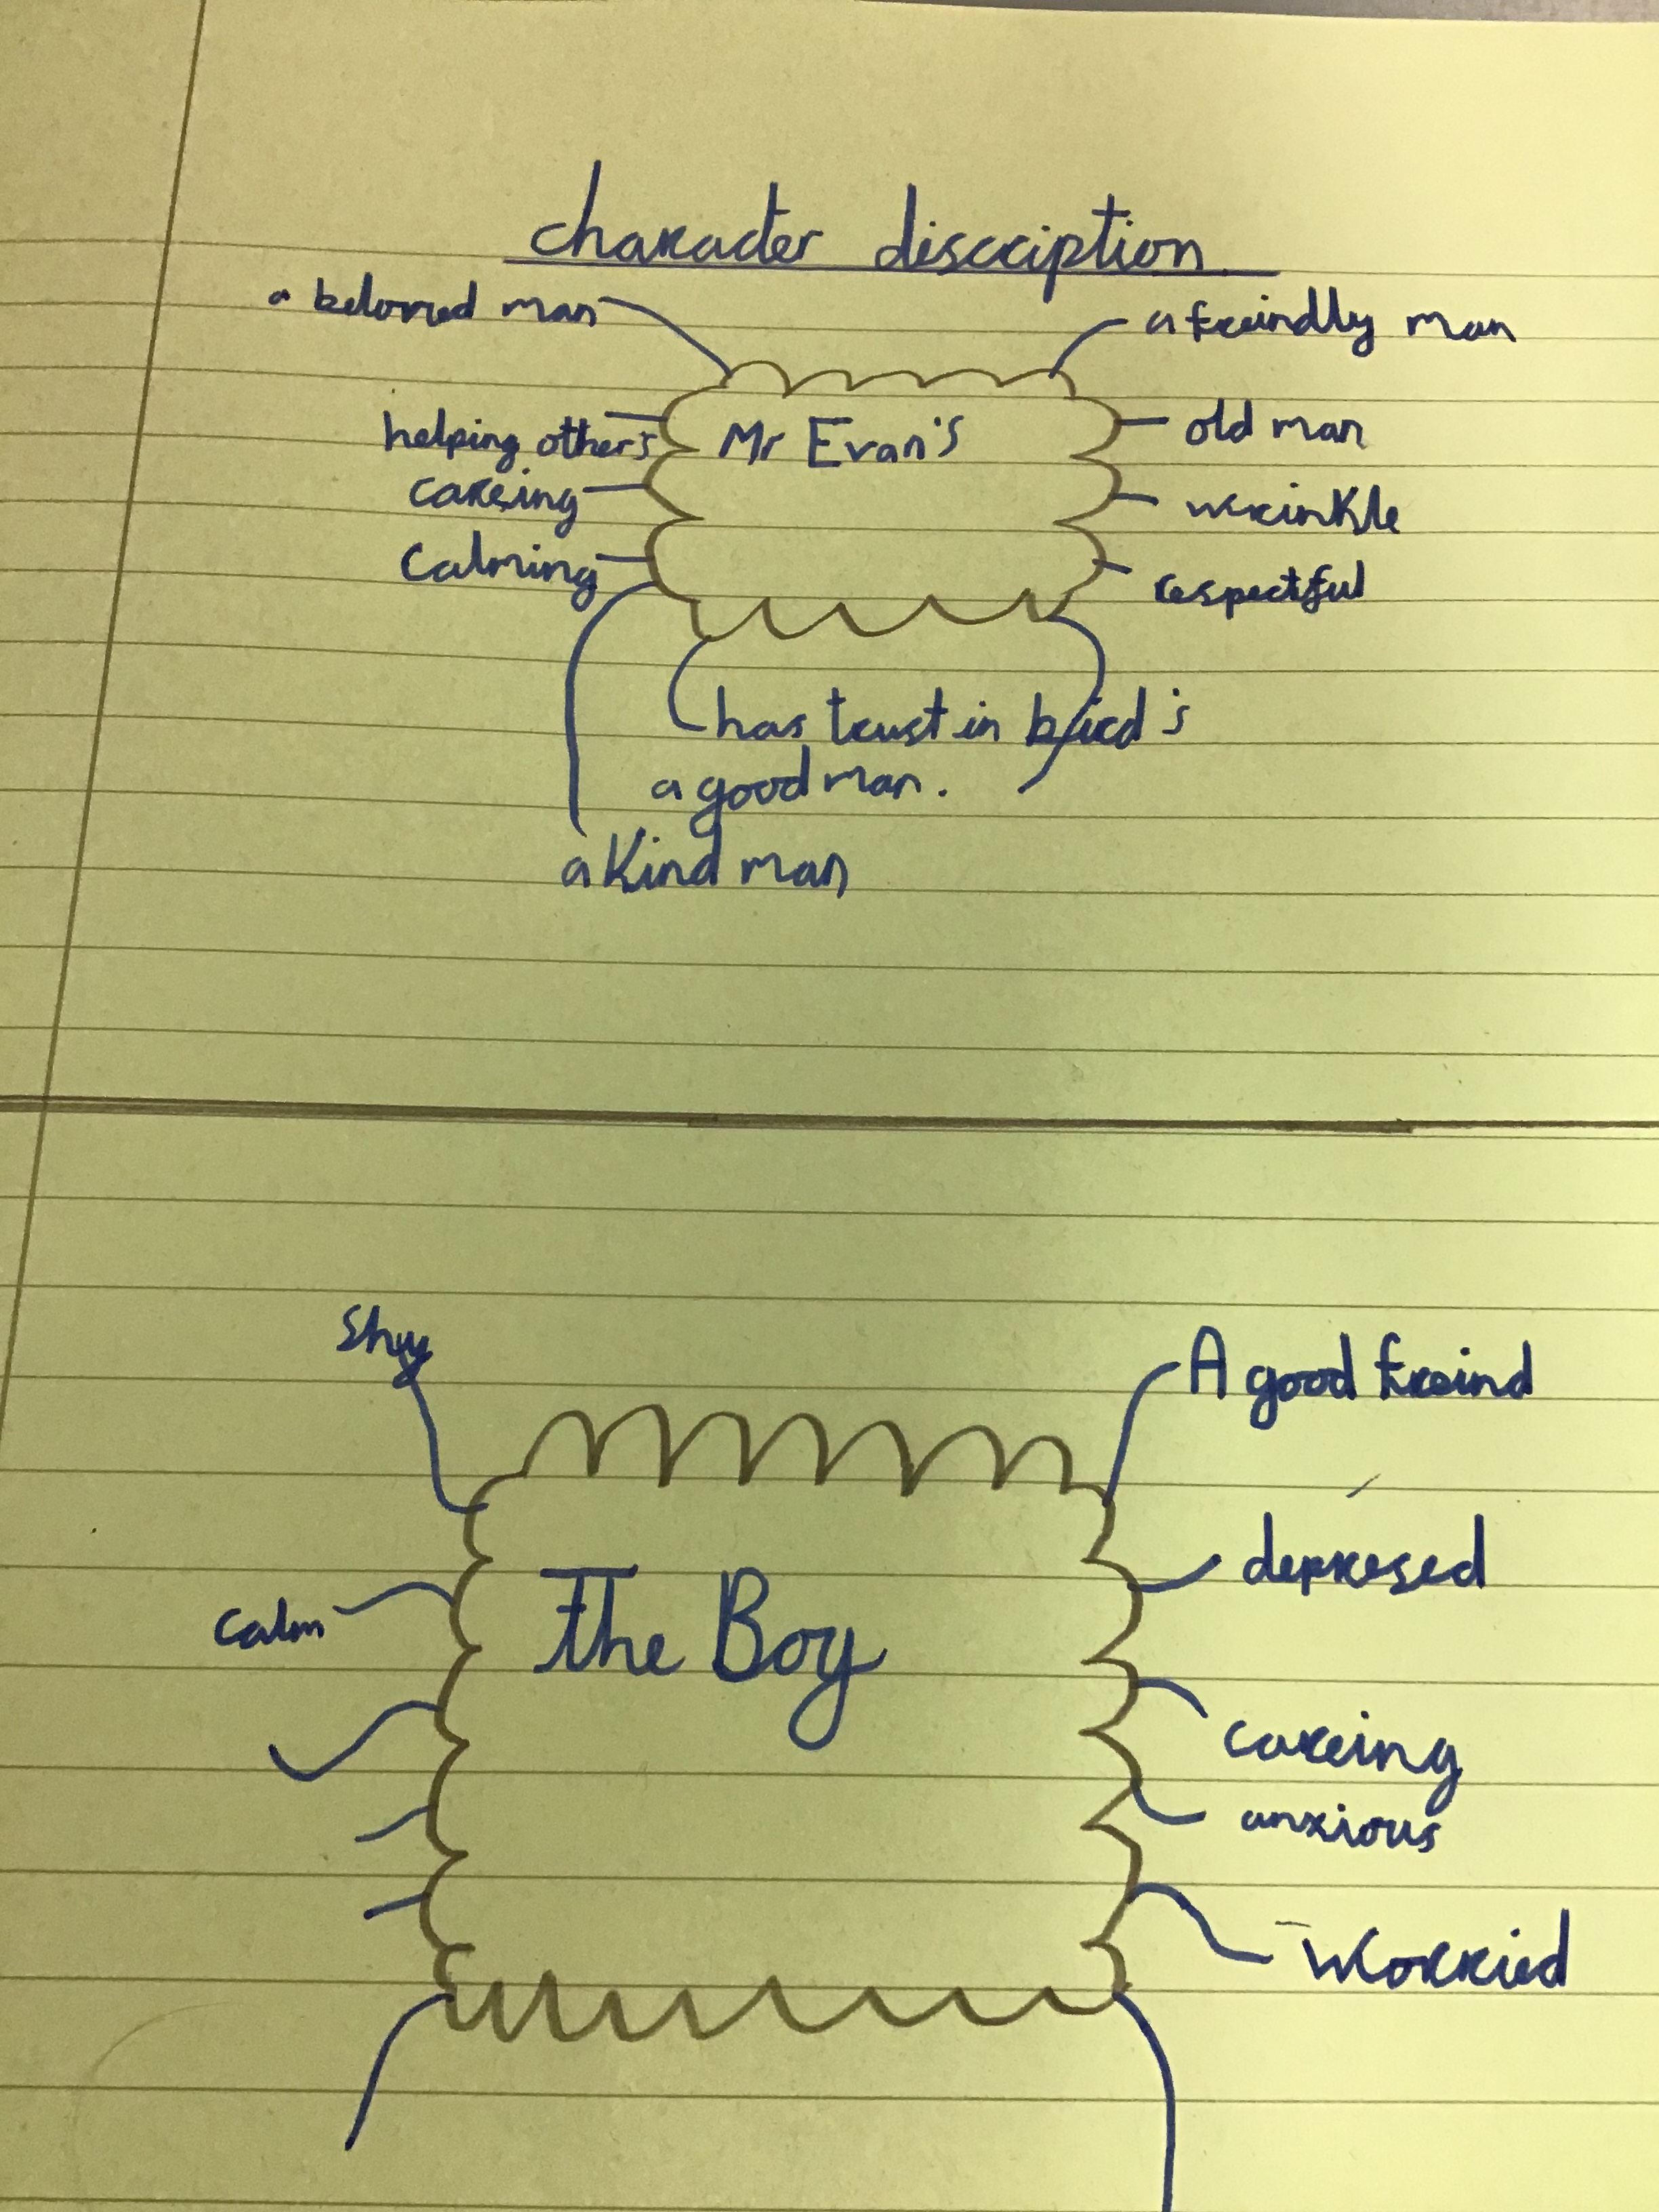 character discciption
a beloved man
a freindly man
Mr Evan's
helping other's
old man
careing
wrinkle
calming
respectful
has trust in bird's
a good man.
a Kind man
Shy
A good freind
The Boy
depresed
calm
careing
anxious
Worried